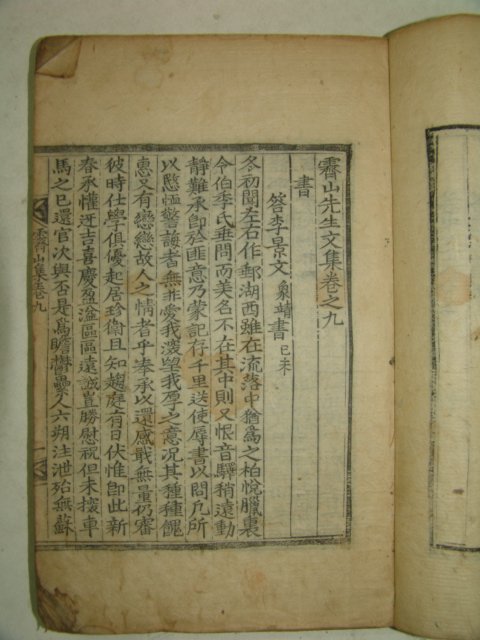 霽山先生文集卷之九
書
答李景文象靖書己未
冬初聞左右作郵湖西雖在流落中猶為之柏悅臘裏
令伯季氏垂問而美名不在其中則又恨音驛稍遠動
靜難承卽於匪意乃蒙記存千里送使辱書以問凡所
以慰恤警誨者無非愛我深望我厚之意況其種種餽
惠又有戀戀故人之情者乎奉承以還感戢無量仍審
彼時仕學俱優起居珍衛且知趨庭有日伏惟卽此新
春承懽迓吉喜慶盈溢區區遠誠豈勝慰祝但未擾車
馬之已還官次與否是爲瞻欝纍人六朔注泄殆無蘇
霽山集卷九